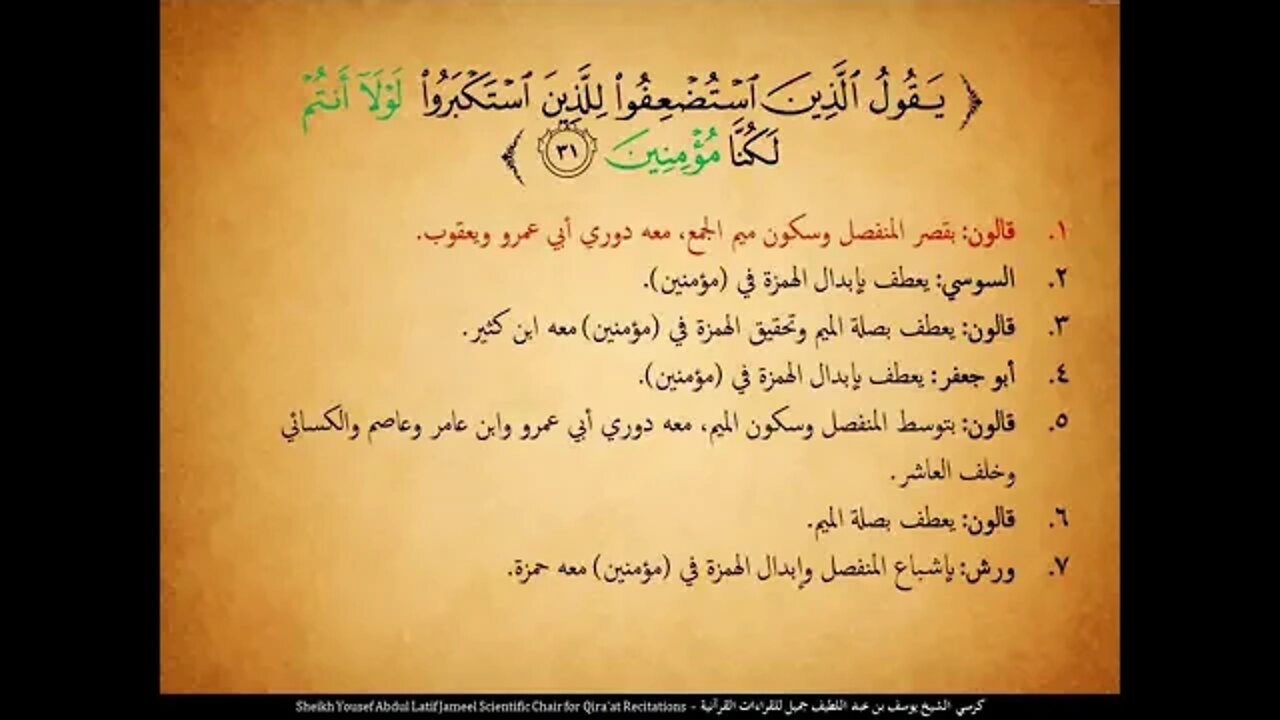 ﴿ يَقُولُ ٱلَّذِينَ ٱسۡتُضۡعِفُواْ لِلَّذِينَ ٱسۡتَكۡبَرُواْ لَوۡلَآ أَنتُمۡ
لَكُنَّا مُؤۡمِنِينَ ٣١ ﴾
١. قالون: بقصر المنفصل وسكون ميم الجمع، معه دوري أبي عمرو ويعقوب.
٢. السوسي: يعطف بإبدال الهمزة في (مؤمنين).
٣. قالون: يعطف بصلة الميم وتحقيق الهمزة في (مؤمنين) معه ابن كثير.
٤. أبو جعفر: يعطف بإبدال الهمزة في (مؤمنين).
٥. قالون: بتوسط المنفصل وسكون الميم، معه دوري أبي عمرو وابن عامر وعاصم والكسائي
وخلف العاشر.
٦. قالون: يعطف بصلة الميم.
٧. ورش: بإشباع المنفصل وإبدال الهمزة في (مؤمنين) معه حمزة.
Sheikh Yousef Abdul Latif Jameel Scientific Chair for Qira'at Recitations - كرسي الشيخ يوسف بن عبد اللطيف جميل للقراءات القرآنية